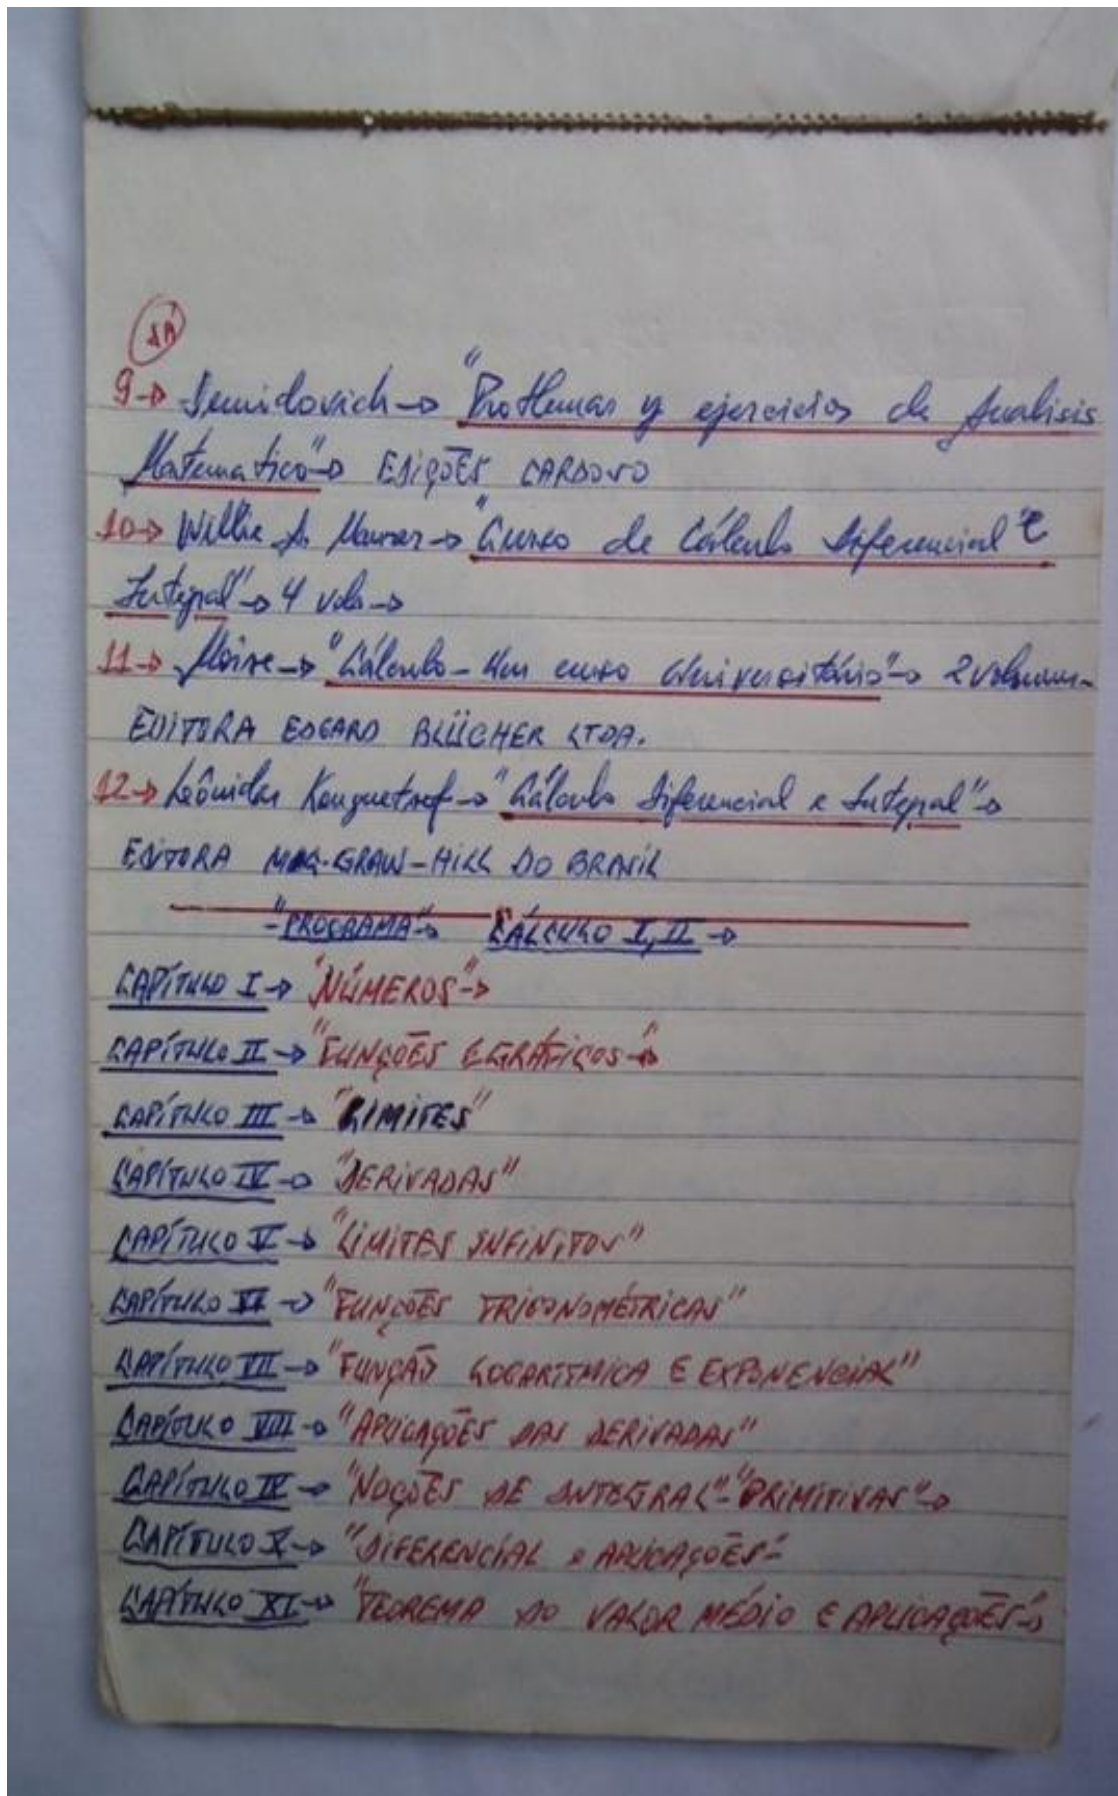 9→ Demidovich→ "Problemas y ejercicios de Analisis
Matematico"→ EDIÇÕES CARDOSO
10→ Willie A. Maurer→ "Curso de Cálculo Diferencial e
Integral"→ 4 vols→
11→ Moise→ "Cálculo-Um curso Universitário"→ 2 volumes-
EDITORA EDGARD BLÜCHER LTDA.
12→ Leônidas Conquetref→ "Cálculo Diferencial e Integral"→
EDITORA MAC-GRAW-HILL DO BRASIL
-"PROGRAMA"→ "CÁLCULO I, II→
CAPÍTULO I→ "NÚMEROS"→
CAPÍTULO II→ "FUNÇÕES E GRÁFICOS→"
CAPÍTULO III→ "LIMITES"
CAPÍTULO IV→ "DERIVADAS"
CAPÍTULO V→ "LIMITES INFINITOS"
CAPÍTULO VI→ "FUNÇÕES TRIGONOMÉTRICAS"
CAPÍTULO VII→ "FUNÇÃO LOGARITMICA E EXPONENCIAL"
CAPÍTULO VIII→ "APLICAÇÕES DAS DERIVADAS"
CAPÍTULO IX→ "NOÇÕES DE INTEGRAL"-"PRIMITIVAS"→
CAPÍTULO X→ "DIFERENCIAL e APLICAÇÕES-"
CAPÍTULO XI→ "TEOREMA DO VALOR MÉDIO E APLICAÇÕES"→